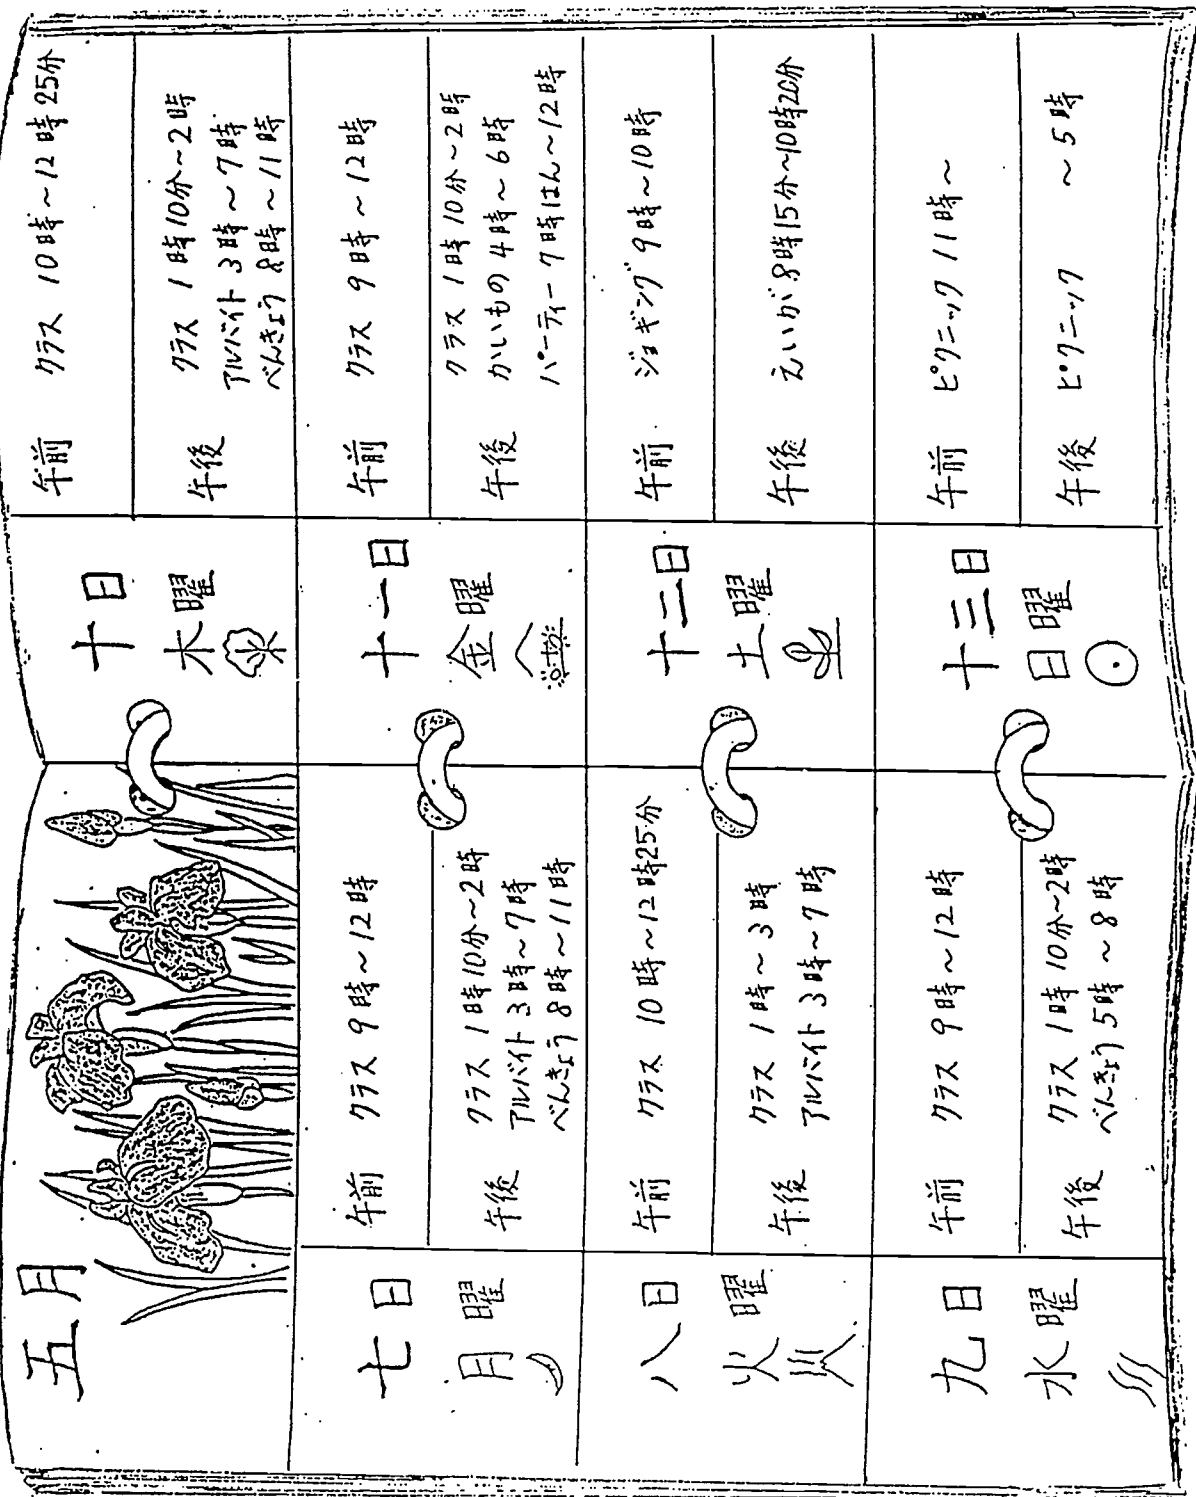 五月
七日
月曜
午前 クラス 9時～12時
午後 クラス 1時10分～2時
アルバイト 3時～7時
べんきょう 8時～11時
八日
火曜
午前 クラス 10時～12時25分
午後 クラス 1時～3時
アルバイト 3時～7時
九日
水曜
午前 クラス 9時～12時
午後 クラス 1時10分～2時
べんきょう 5時～8時
十日
木曜
午前 クラス 10時～12時25分
午後 クラス 1時10分～2時
アルバイト 3時～7時
べんきょう 8時～11時
十一日
金曜
午前 クラス 9時～12時
午後 クラス 1時10分～2時
かいもの 4時～6時
パーティー 7時はん～12時
十二日
土曜
午前 ジョギング 9時～10時
午後 えいが 8時15分～10時20分
十三日
日曜
午前 ピクニック 11時～
午後 ピクニック ～5時